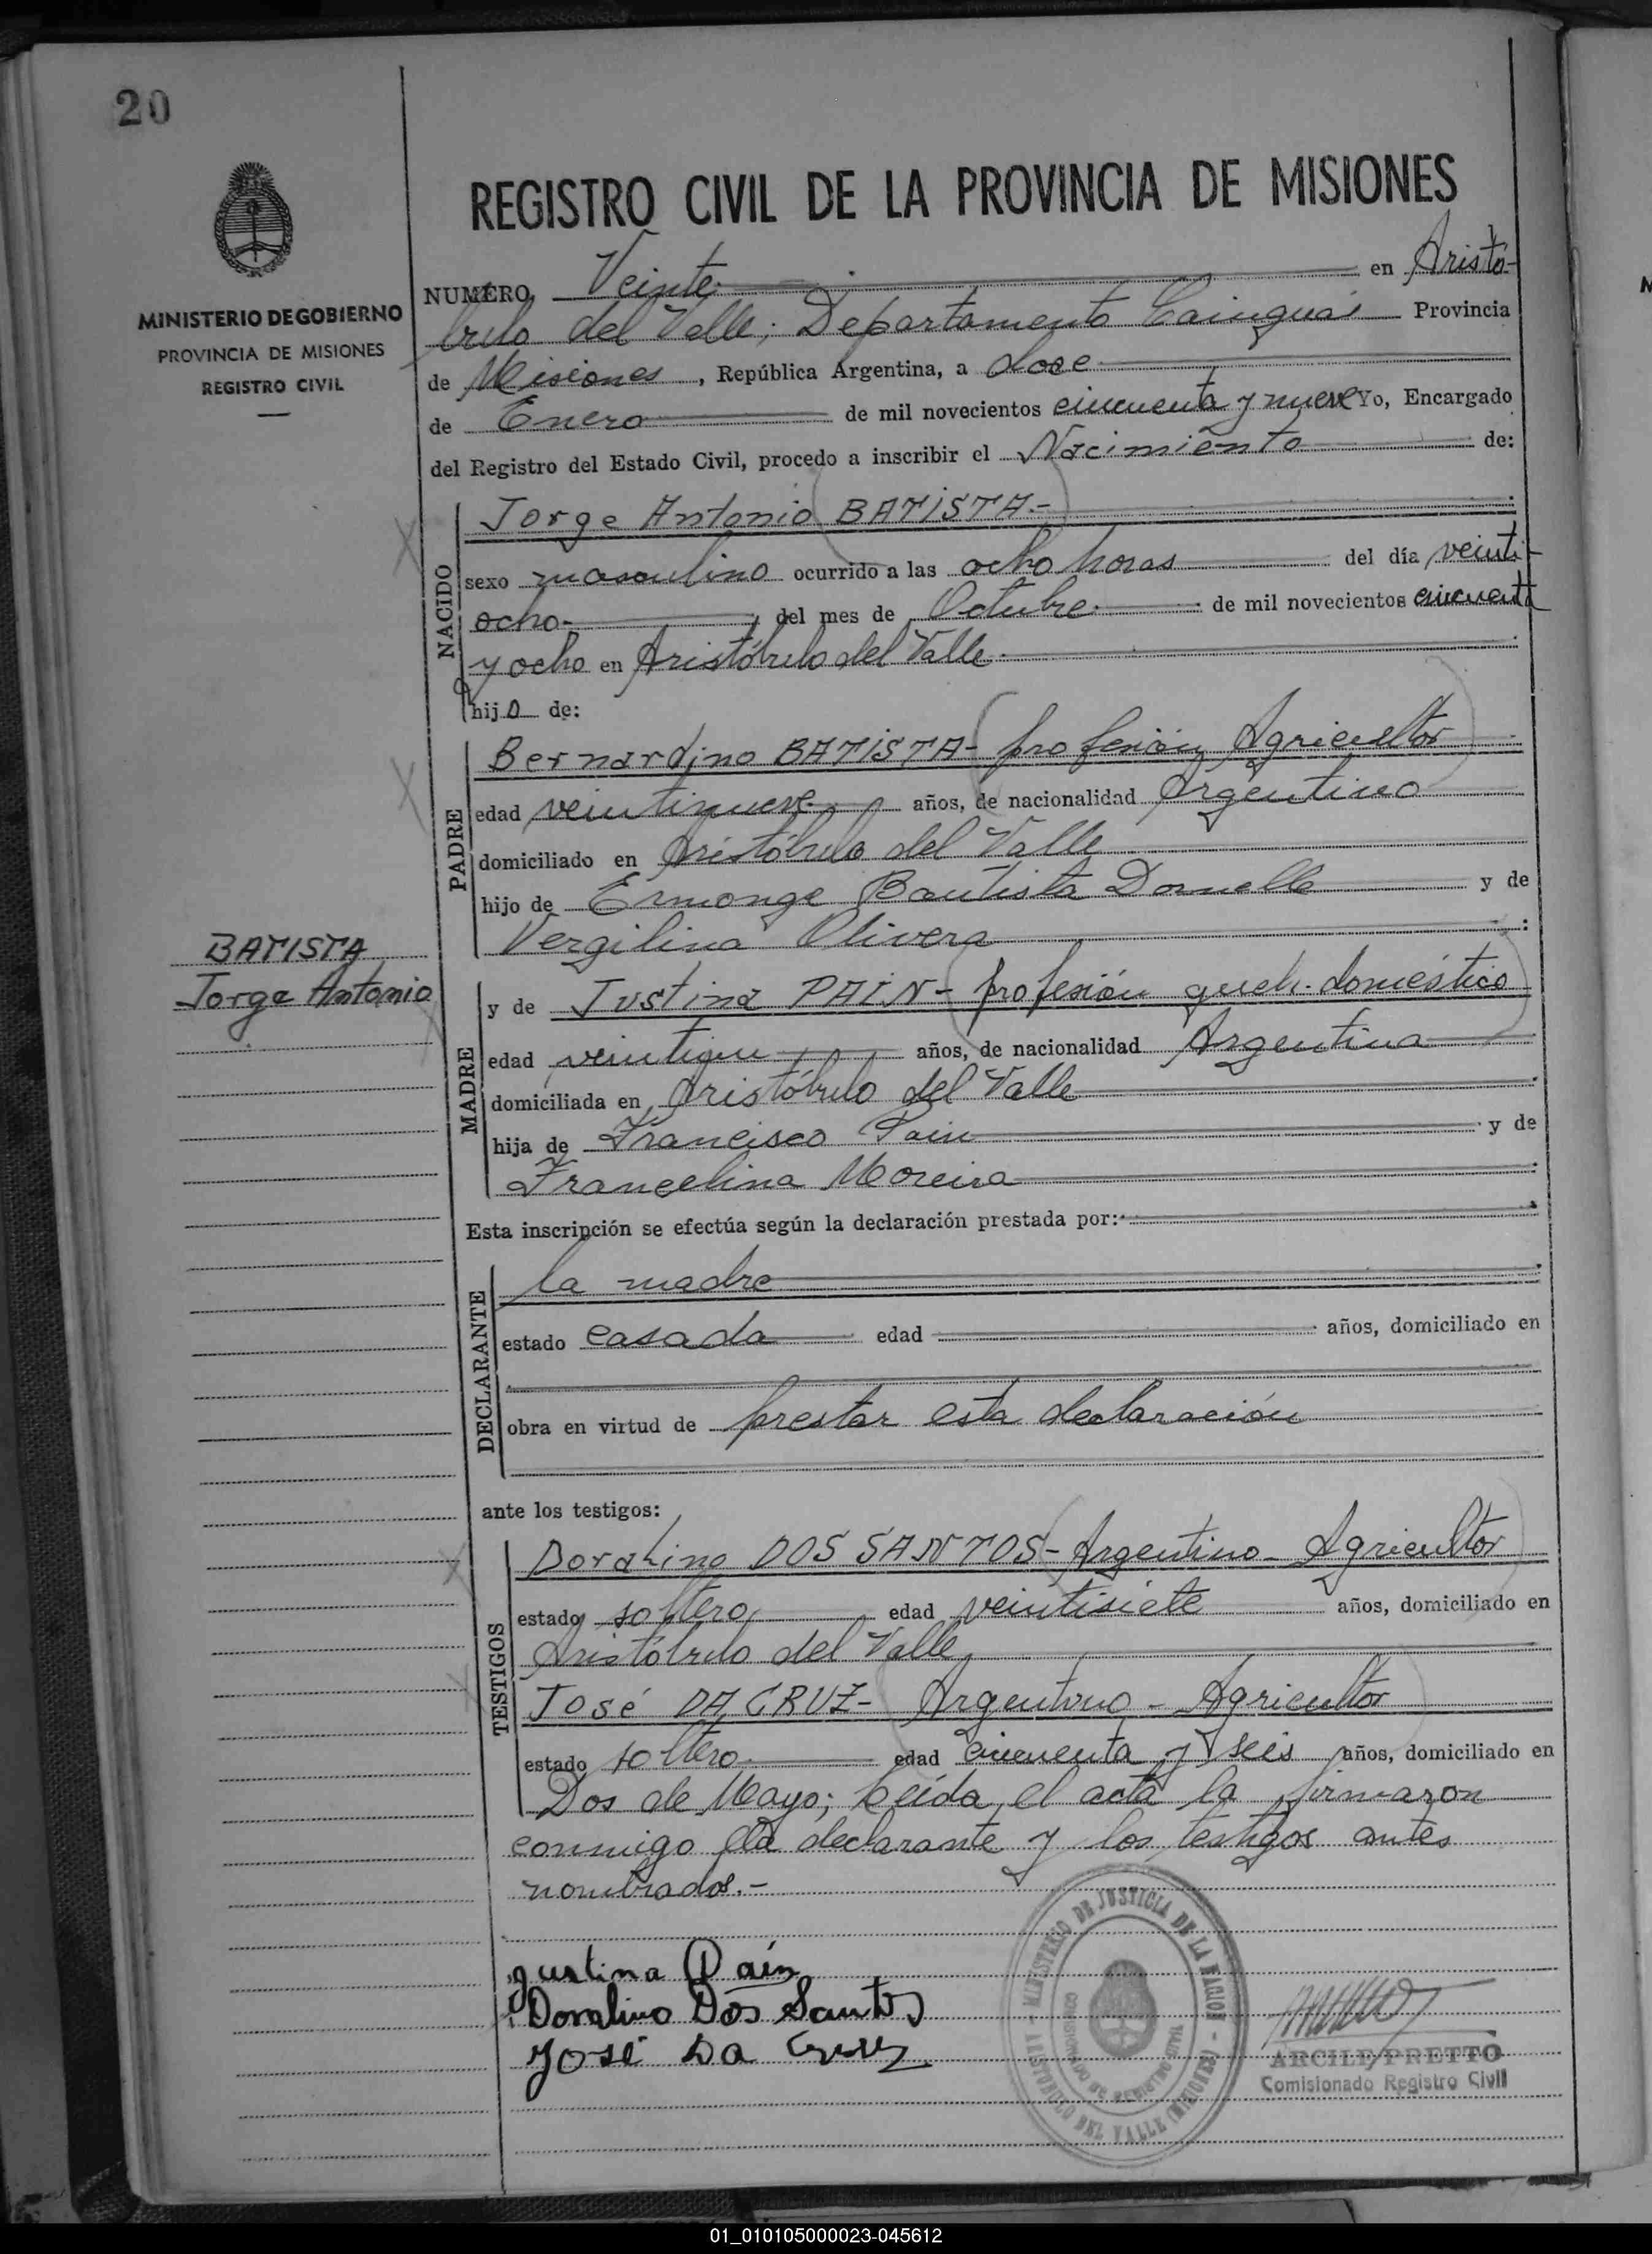 20
MINISTERIO DE GOBIERNO
PROVINCIA DE MISIONES
REGISTRO CIVIL
REGISTRO CIVIL DE LA PROVINCIA DE MISIONES
NUMERO Veinte en Aristó-
bulo del Valle; Departamento Cainguás Provincia
de Misiones, República Argentina, a doce
de Enero de mil novecientos cincuenta y nueve Yo, Encargado
del Registro del Estado Civil, procedo a inscribir el Nacimiento de:
NACIDO
Jorge Antonio BATISTA-
sexo masculino ocurrido a las ocho horas del día veinti-
ocho- del mes de Octubre de mil novecientos cincuenta
y ocho en Aristóbulo del Valle
hijo de:
PADRE
Bernardino BATISTA- profesión Agricultor
edad veintinueve años, de nacionalidad Argentino
domiciliado en Aristóbulo del Valle
hijo de Ermonge Bautista Dornelle y de
Vergilina Olivera
BATISTA
Jorge Antonio
MADRE
y de Justina PAIN- profesión queh. doméstico
edad años, de nacionalidad Argentina
domiciliada en Aristóbulo del Valle
hija de Francisco Pain y de
Francelina Moreira
Esta inscripción se efectúa según la declaración prestada por:
DECLARANTE
la madre
estado casada edad años, domiciliado en
obra en virtud de prestar esta declaración
ante los testigos:
TESTIGOS
Doralino DOS SANTOS- Argentino- Agricultor
estado soltero edad veintisiete años, domiciliado en
Aristóbulo del Valle
José DA CRUZ- Argentino- Agricultor
estado soltero edad cincuenta y seis años, domiciliado en
Dos de Mayo; Leída el acta la firmaron
conmigo la declarante y los testigos antes
nombrados.-
Justina Paín
Doralino Dos Santos
José Da Cruz
MINISTERIO DE JUSTICIA DE LA NACION
ARISTOBULO DEL VALLE (MISIONES)
COMISIONADO DE REGISTRO CIVIL
ARCILE PRETTO
Comisionado Registro Civil
01_010105000023-045612